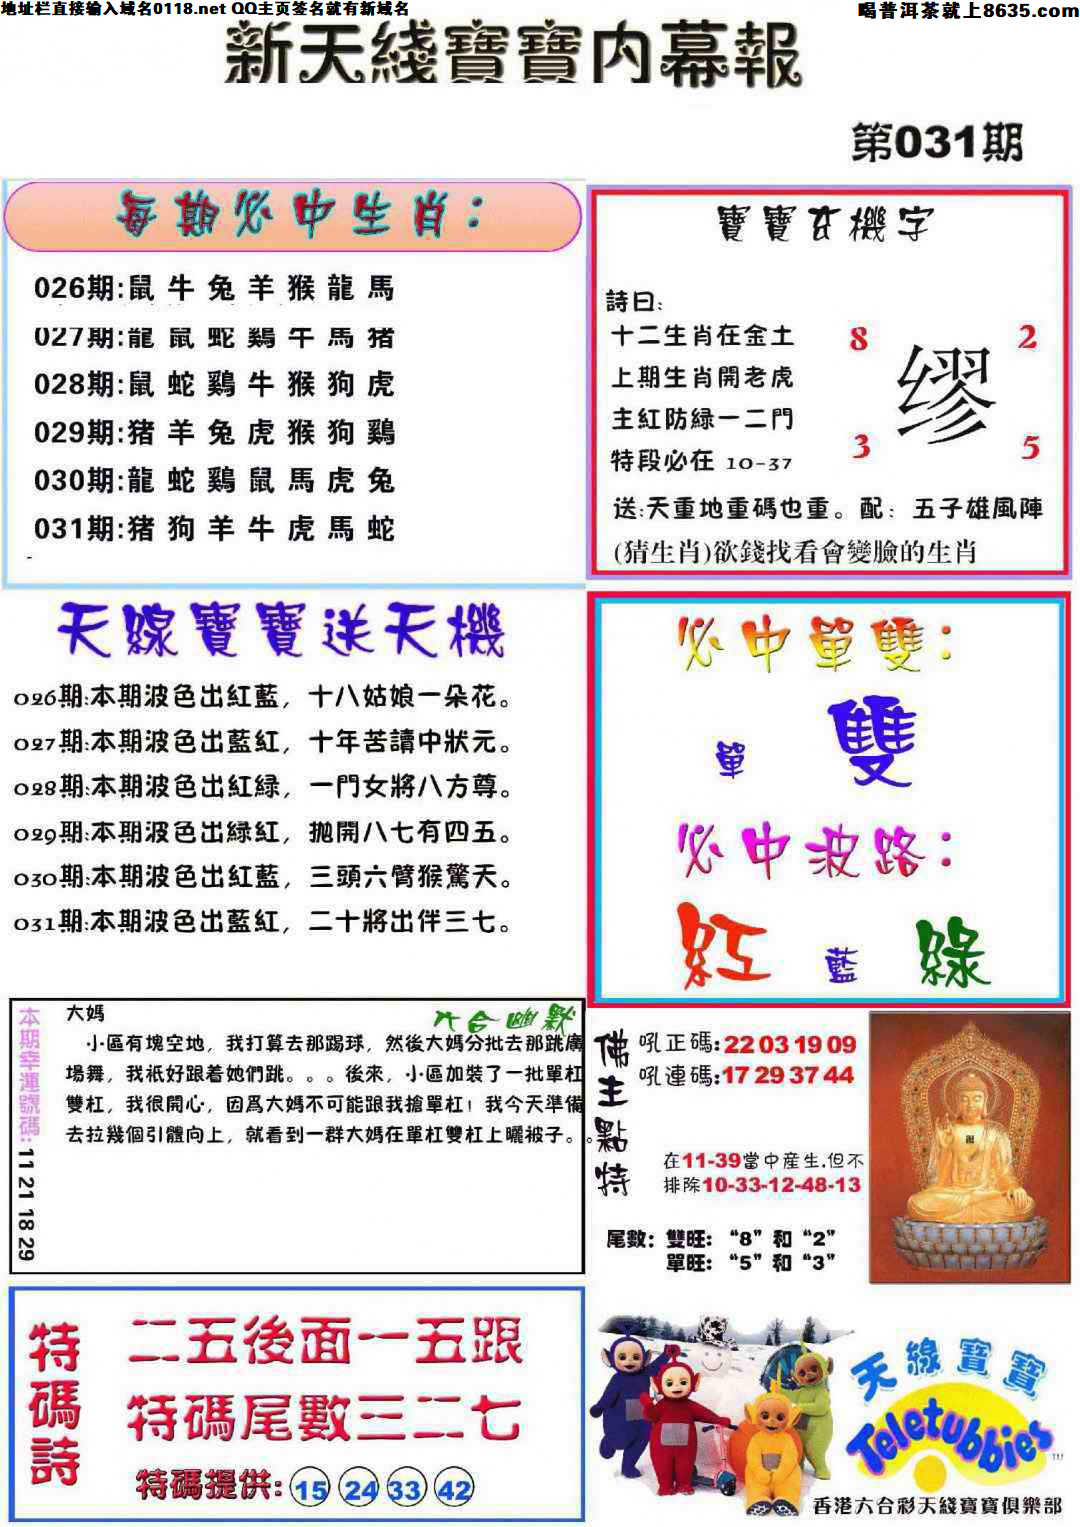 地址栏直接输入域名0118.net QQ主页签名就有新域名
喝普洱茶就上8635.com
新天綫寶寶内幕報
第031期
每期必中生肖：
026期:鼠 牛 兔 羊 猴 龍 馬
027期:龍 鼠 蛇 鷄 牛 馬 猪
028期:鼠 蛇 鷄 牛 猴 狗 虎
029期:猪 羊 兔 虎 猴 狗 鷄
030期:龍 蛇 鷄 鼠 馬 虎 兔
031期:猪 狗 羊 牛 虎 馬 蛇
寶寶玄機字
詩曰:
十二生肖在金土
上期生肖開老虎
主紅防緑一二門
特段必在 10-37
8
2
缪
3
5
送:天重地重碼也重。配：五子雄風陣
(猜生肖)欲錢找看會變臉的生肖
天線寶寶送天機
026期:本期波色出紅藍，十八姑娘一朵花。
027期:本期波色出藍紅，十年苦讀中狀元。
028期:本期波色出紅緑，一門女將八方尊。
029期:本期波色出緑紅，抛開八七有四五。
030期:本期波色出紅藍，三頭六臂猴驚天。
031期:本期波色出藍紅，二十將出伴三七。
必中單雙：
單 雙
必中波路：
紅 藍 綠
本期幸運號碼:11 21 18 29
六合幽默
大媽
小區有塊空地，我打算去那踢球，然後大媽分批去那跳廣
場舞，我衹好跟着她們跳。。。後來，小區加裝了一批單杠
雙杠，我很開心，因爲大媽不可能跟我搶單杠！我今天準備
去拉幾個引體向上，就看到一群大媽在單杠雙杠上曬被子。。
佛主點特
吼正碼:22 03 19 09
吼連碼:17 29 37 44
在11-39當中産生.但不
排除10-33-12-48-13
尾數：雙旺：“8”和“2”
單旺：“5”和“3”
特碼詩
二五後面一五跟
特碼尾數三二七
特碼提供: 15 24 33 42
天線寶寶
Teletubbies
TM
香港六合彩天綫寶寶俱樂部